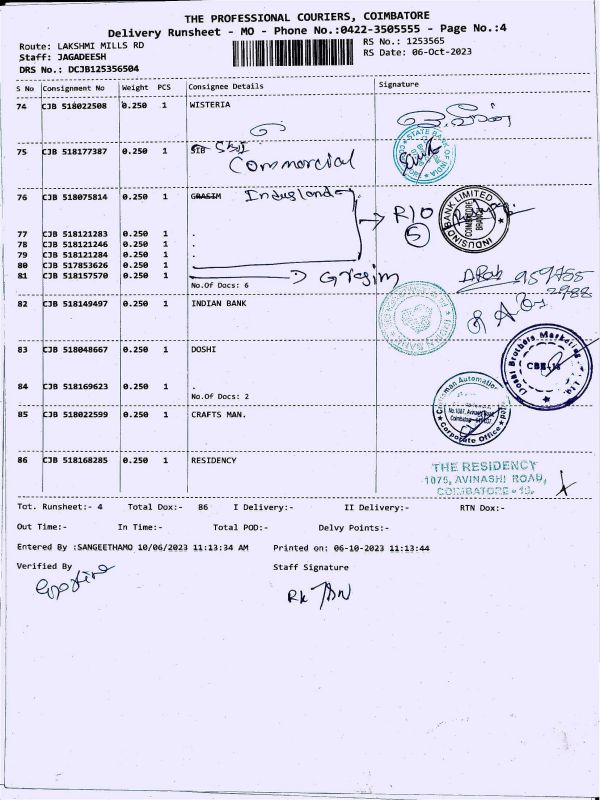 THE PROFESSIONAL COURIERS, COIMBATORE
Delivery Runsheet - MO - Phone No.:0422-3505555 - Page No.:4
Route: LAKSHMI MILLS RD
RS No.: 1253565
Staff: JAGADEESH
RS Date: 06-Oct-2023
DRS No.: DCJB125356504
S No Consignment No Weight PCS Consignee Details Signature
74 CJB 518022508 0.250 1 WISTERIA
75 CJB 518177387 0.250 1 SIB SBI
Commercial
STATE BANK OF INDIA
76 CJB 518075814 0.250 1 GRASIM IndusLand
R/O
5
INDUSIND BANK LIMITED
COIMBATORE
BRANCH
77 CJB 518121283 0.250 1 .
78 CJB 518121246 0.250 1 .
79 CJB 518121284 0.250 1 .
80 CJB 517853626 0.250 1
81 CJB 518157570 0.250 1 Grasim
No.Of Docs: 6
82 CJB 518149497 0.250 1 INDIAN BANK
83 CJB 518048667 0.250 1 DOSHI
Doshi Brothers Marketing
CBE-18
84 CJB 518169623 0.250 1 .
No.Of Docs: 2
85 CJB 518022599 0.250 1 CRAFTS MAN.
Craftsman Automation
No.1087, Avinashi Road,
Corporate Office
86 CJB 518168285 0.250 1 RESIDENCY
THE RESIDENCY
1076, AVINASHI ROAD,
COIMBATORE - 18.
Tot. Runsheet:- 4 Total Dox:- 86 I Delivery:- II Delivery:- RTN Dox:-
Out Time:- In Time:- Total POD:- Delvy Points:-
Entered By :SANGEETHAMO 10/06/2023 11:13:34 AM Printed on: 06-10-2023 11:13:44
Verified By Staff Signature